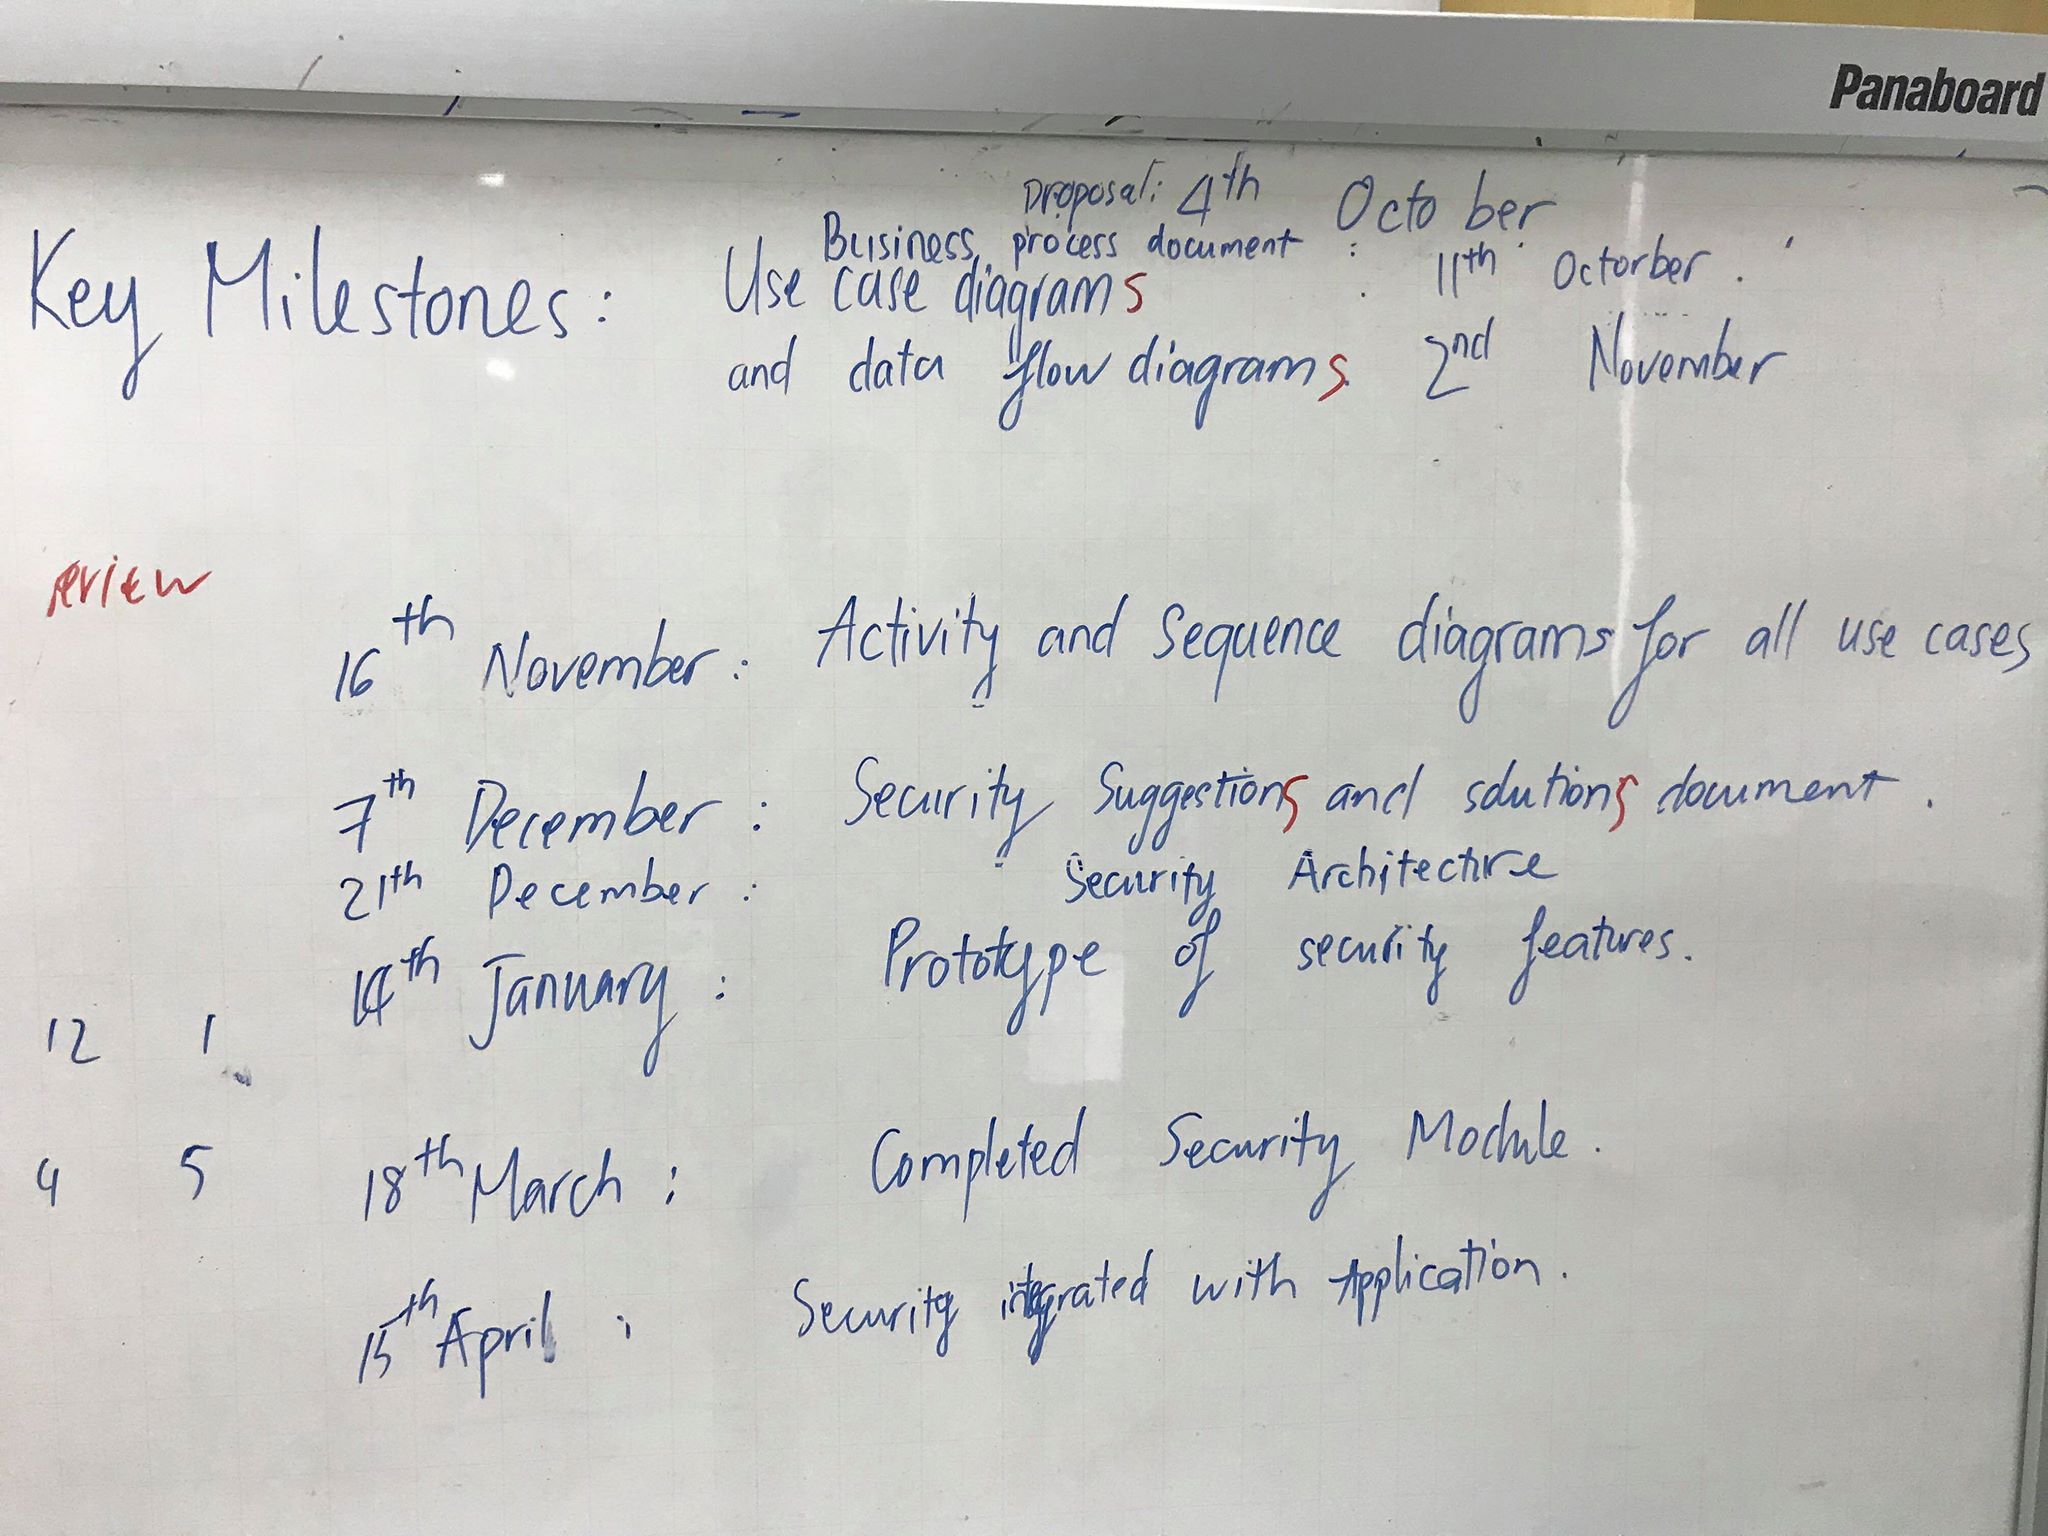 Panaboard
Proposal: 4th October
Business process document : 11th Octorber .
Key Milestones: Use case diagrams
and data flow diagrams 2nd November
review
16th November: Activity and Sequence diagrams for all use cases
7th December: Security Suggestions and solutions document.
21th December: Security Architecture
14th January: Prototype of security features.
12 1
18th March: Completed Security Module.
4 5
15th April: Security integrated with Application.